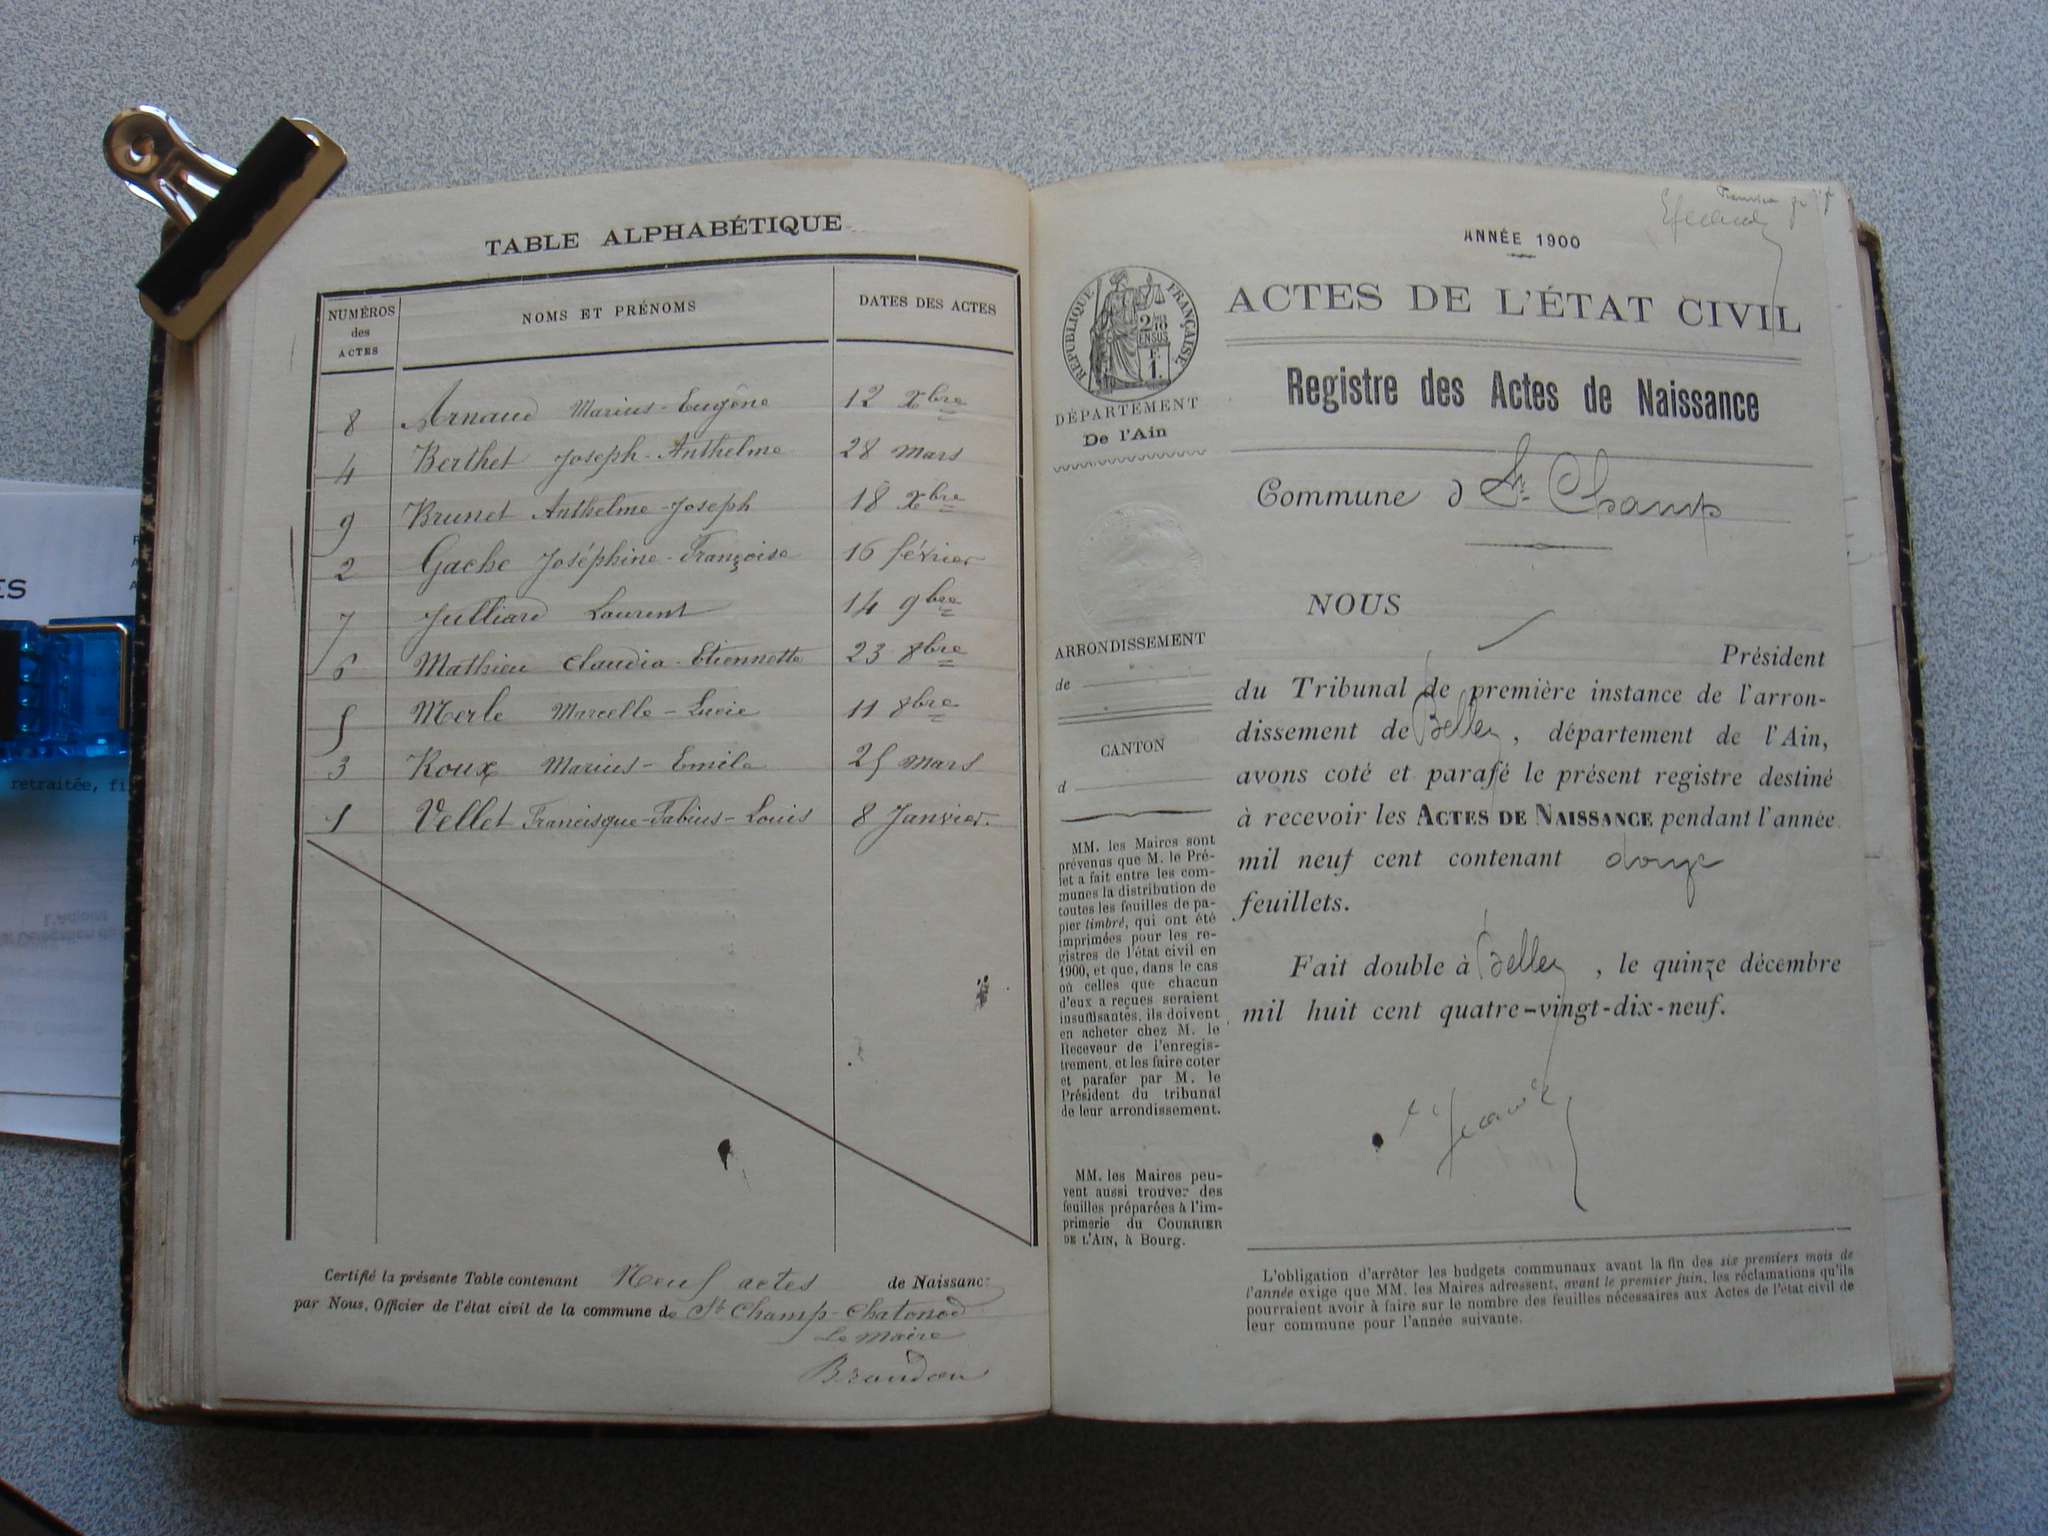 TABLE ALPHABÉTIQUE
NUMÉROS des ACTES NOMS ET PRÉNOMS DATES DES ACTES
8 Arnaud Marius-Eugène 12 Xbre
4 Berthet Joseph-Anthelme 28 mars
9 Brunet Anthelme-Joseph 18 Xbre
2 Gache Joséphine-Françoise 16 février
7 Julliard Laurent 14 9bre
6 Mathieu Claudia-Etiennette 23 8bre
5 Merle Marcelle-Lucie 11 8bre
3 Roux Marius-Emile 25 mars
1 Vellet Francisque-Fabius-Louis 8 Janvier.
Certifié la présente Table contenant Neuf actes de Naissance
par Nous, Officier de l'état civil de la commune de St Champ-Chatonod
Le Maire
ANNÉE 1900
RÉPUBLIQUE FRANÇAISE
ACTES DE L'ÉTAT CIVIL
Registre des Actes de Naissance
DÉPARTEMENT
De l'Ain
Commune d St Champ
NOUS
Président
du Tribunal de première instance de l'arron-
dissement de Belley, département de l'Ain,
avons coté et parafé le présent registre destiné
à recevoir les ACTES DE NAISSANCE pendant l'année
mil neuf cent contenant douze
feuillets.
Fait double à Belley, le quinze décembre
mil huit cent quatre-vingt-dix-neuf.
ARRONDISSEMENT
de
CANTON
d
MM. les Maires sont
prévenus que M. le Pré-
fet a fait entre les com-
munes la distribution de
toutes les feuilles de pa-
pier timbré, qui ont été
imprimées pour les re-
gistres de l'état civil en
1900, et que, dans le cas
où celles que chacun
d'eux a reçues seraient
insuffisantes, ils doivent
en acheter chez M. le
Receveur de l'enregis-
trement, et les faire coter
et parafer par M. le
Président du tribunal
de leur arrondissement.
MM. les Maires peu-
vent aussi trouver des
feuilles préparées à l'im-
primerie du COURRIER
DE L'AIN, à Bourg.
L'obligation d'arrêter les budgets communaux avant la fin des six premiers mois de
l'année exige que MM. les Maires adressent, avant le premier juin, les réclamations qu'ils
pourraient avoir à faire sur le nombre des feuilles nécessaires aux Actes de l'état civil de
leur commune pour l'année suivante.
ES
retraitée, fi